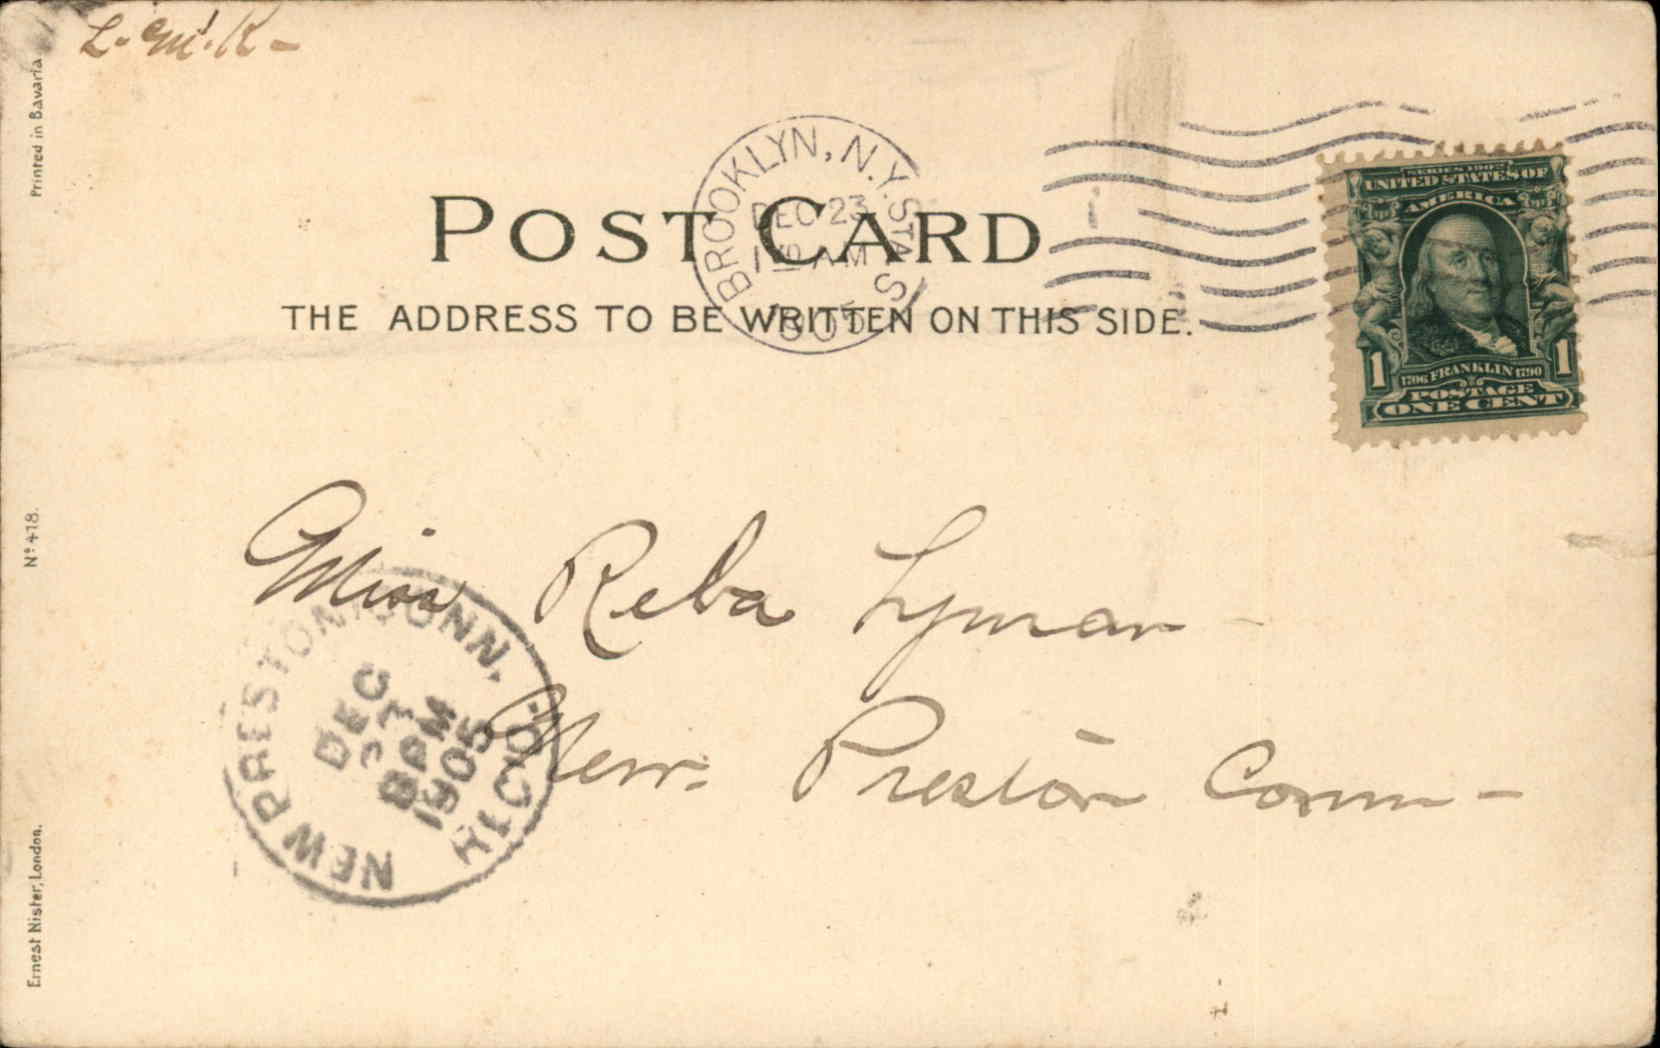 L. M. K-
Printed in Bavaria.
POST CARD
THE ADDRESS TO BE WRITTEN ON THIS SIDE.
BROOKLYN, N.Y. STA. S
DEC 23
AM
1905
SERIES 1902
UNITED STATES OF
AMERICA
1 1706 FRANKLIN 1790 1
POSTAGE
ONE CENT
Nº 418.
Miss Reba Lyman
New Preston Conn-
NEW PRESTON, CONN.
DEC
8 PM
1905
REC'D.
Ernest Nister, London.